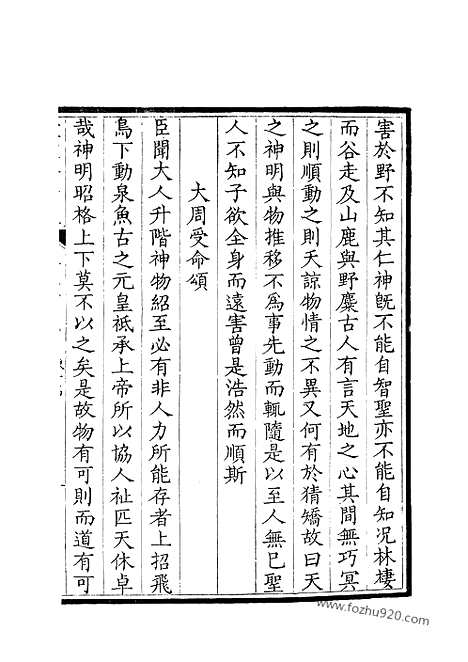 害於野不知其仁神旣不能自智聖亦不能自知况林棲
而谷走及山鹿與野麋古人有言天地之心其間無巧冥
之則順動之則夭諒物情之不異又何有於猜矯故曰天
之神明與物推移不爲事先動而輒隨是以至人無已聖
人不知子欲全身而遠害曾是浩然而順斯
大周受命頌
臣聞大人升階神物紹至必有非人力所能存者上招飛
鳥下動泉魚古之元皇祗承上帝所以協人祉匹天休卓
哉神明昭格上下莫不以之矣是故物有可則而道有可
www.fozhu920.com